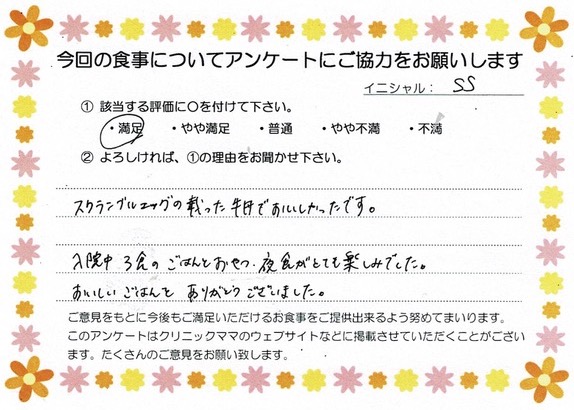 今回の食事についてアンケートにご協力をお願いします
イニシャル： SS
① 該当する評価に〇を付けて下さい。
・満足 ・やや満足 ・普通 ・やや不満 ・不満
② よろしければ、①の理由をお聞かせ下さい。
スクランブルエッグの載った牛丼でおいしかったです。
入院中 3食の ごはんとおやつ・夜食がとても楽しみでした。
おいしいごはんを ありがとうございました。
ご意見をもとに今後もご満足いただけるお食事をご提供出来るよう努めてまいります。
このアンケートはクリニックママのウェブサイトなどに掲載させていただくことがござい
ます。たくさんのご意見をお願い致します。